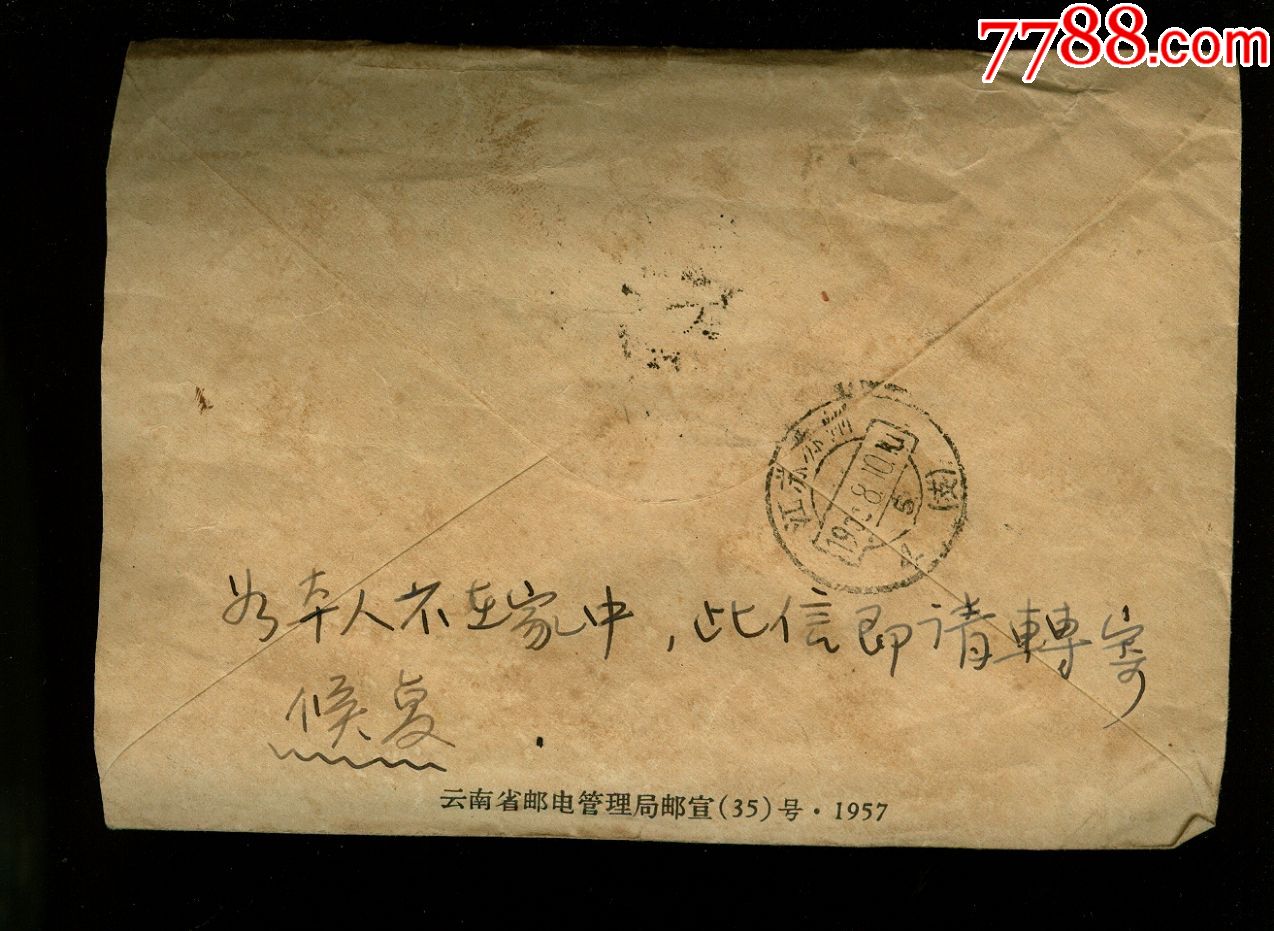 7788.com
江苏
8.10.
如本人不在家中，此信即请轉寄
候复
云南省邮电管理局邮宣(35)号·1957